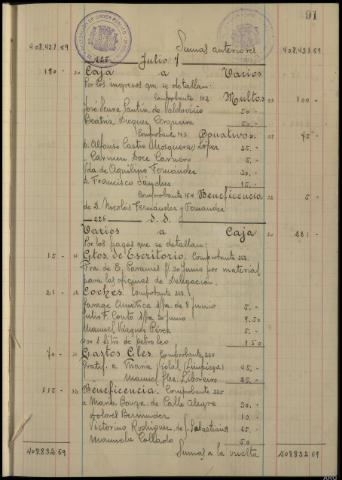 91
408,427.69 Sumas anteriores 408,427.69
225 Julio 1
180 - Caja a Varios
Por los ingresos que se detallan:
Comprobante 162 Multas 100 -
José Pentín de Valdovicio 50 -
Beatriz Dieguez 50 -
Comprobante 163 Donativos 75 -
D. Alfonso Castro Mosquera López 25 -
Carmen Carnero 5 -
Vda de Aquilino Fernandez 30 -
D. Francisco 15 -
Comprobante 164 Beneficencia 5 -
de D. Nicolás Fernández y Fernández
226 D. D.
Varios a Caja 221 -
Por los pagos que se detallan:
15 - Gtos. de Escritorio. Comprobante 222
Fra. de E. 30 Junio por material
para las oficinas de Delegación.
21 - Coches. Comprobante
Garage América s/fa. de 8 Junio 5 -
Julio F. Couto s/fa 30 Junio 9.50
Manuel Vázquez Pérez 5 -
por 1 litro de petroleo 1.50
70 - Gastos Gles. Comprobante 225
Gratif. a Maria (limpieza) 25 -
Manuel Glez. 45 -
115 - Beneficencia. Comprobante 226
a Maria de Calle Alegre 30 -
Dolores Bermudez 10 -
Victorino Rodriguez de S. Sebastian 25 -
Manuela Collado 50 -
408832.69 Sumas a la vuelta 408832.69